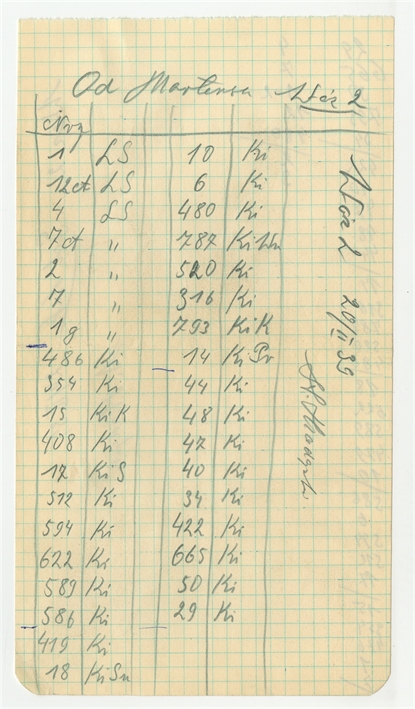 Od Martensa Wóz 2
Nry
1 LS 10 Ki
12a LS 6 Ki
4 LS 480 Ki
7a " 787 KiWu
2 " 520 Ki
7 " 316 Ki
1g " 793 KiK
486 Ki 14 KiPr
354 Ki 44 Ki
15 KiK 48 Ki
408 Ki 47 Ki
17 KiS 40 Ki
512 Ki 34 Ki
594 Ki 422 Ki
622 Ki 665 Ki
589 Ki 50 Ki
586 Ki 29 Ki
419 Ki
18 KiSn
Wóz 2 20/II 39